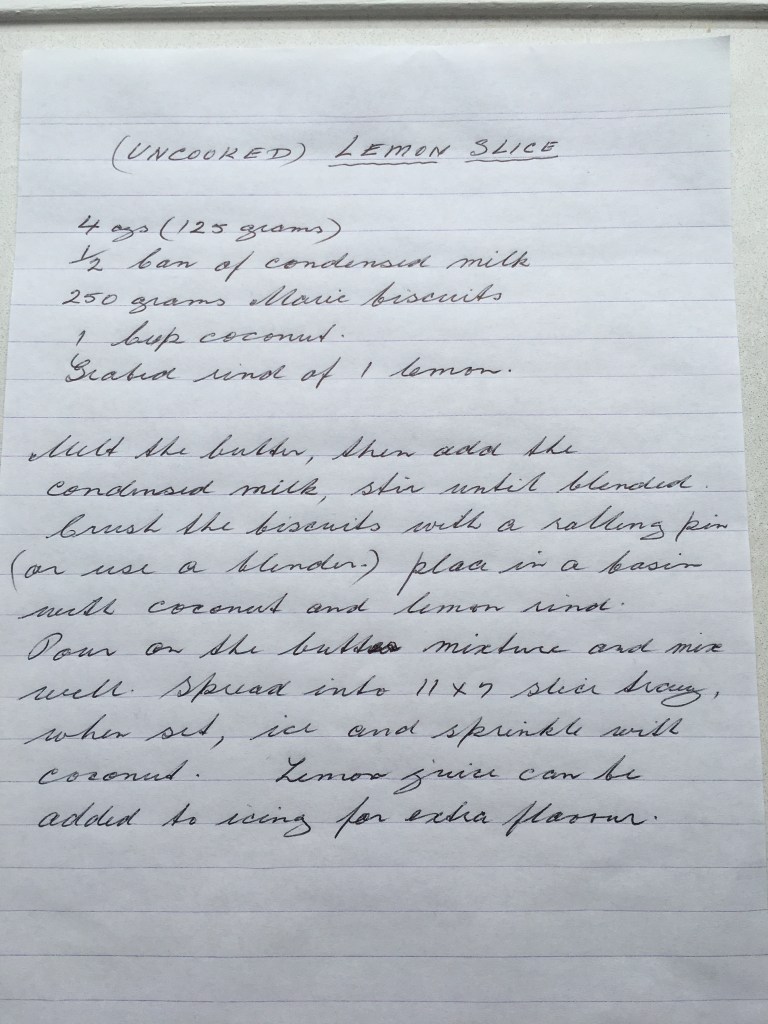 (UNCOOKED) LEMON SLICE
4 ozs (125 grams)
1/2 can of condensed milk
250 grams Marie biscuits
1 cup coconut.
Grated rind of 1 lemon.
Melt the butter, then add the
condensed milk, stir until blended.
Crush the biscuits with a rolling pin
(or use a blender.) place in a basin
with coconut and lemon rind.
Pour on the butter mixture and mix
well. Spread into 11 x 7 slice tray,
when set, ice and sprinkle with
coconut. Lemon juice can be
added to icing for extra flavour.